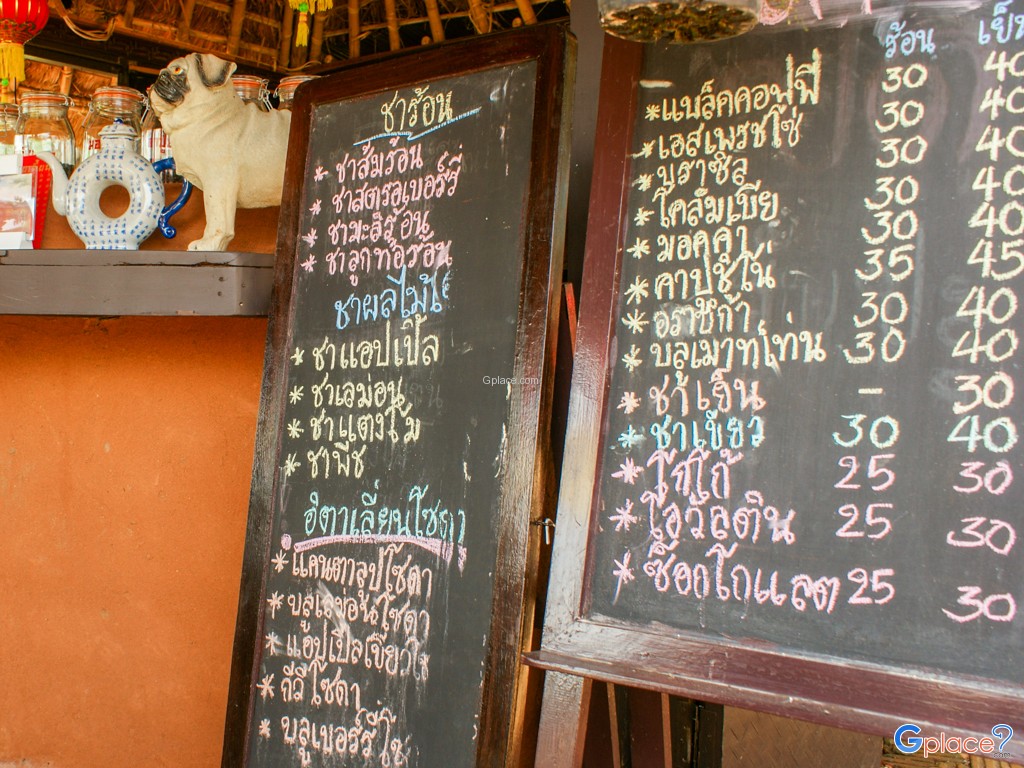 ชาร้อน
* ชาส้มร้อน
* ชาสตรอเบอร์รี่
* ชามะลิร้อน
* ชาลูกท้อร้อน
ชาผลไม้
* ชาแอปเปิ้ล
* ชาเลม่อน
* ชาแตงโม
* ชาพีช
อิตาเลี่ยนโซดา
* แคนตาลูปโซดา
* บลูเลม่อนโซดา
* แอปเปิ้ลเขียว
* กีวีโซดา
* บลูเบอร์รี่
ร้อน เย็น
* แบล็คคอฟฟี่ 30 40
* เอสเพรชโซ่ 30 40
* บราซิล 30 40
* โคลัมเบีย 30 40
* มอคคา 30 40
* คาปูชิโน 35 45
* อราบิก้า 30 40
* บลูเมาท์เท่น 30 40
* ชาเย็น - 30
* ชาเขียว 30 40
* โกโก้ 25 30
* โอวัลติน 25 30
* ช็อกโกแลต 25 30
Gplace.com
Gplace